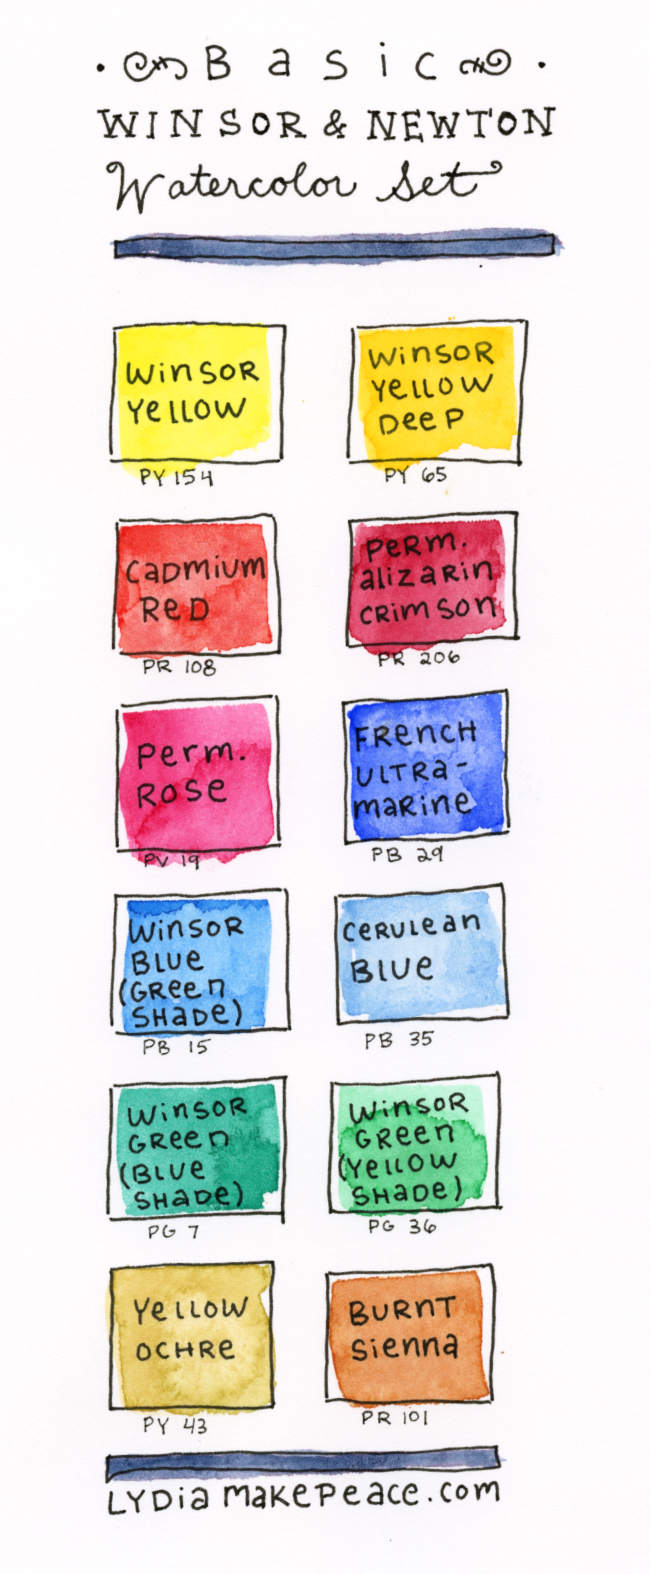 Basic
WINSOR & NEWTON
Watercolor Set
WINSOR
YELLOW
PY 154
WINSOR
YELLOW
DEEP
PY 65
CADMIUM
RED
PR 108
PERM.
ALIZARIN
CRIMSON
PR 206
PERM.
ROSE
PV 19
FRENCH
ULTRA-
MARINE
PB 29
WINSOR
BLUE
(GREEN
SHADE)
PB 15
CERULEAN
BLUE
PB 35
WINSOR
GREEN
(BLUE
SHADE)
PG 7
WINSOR
GREEN
(YELLOW
SHADE)
PG 36
YELLOW
OCHRE
PY 43
BURNT
SIENNA
PR 101
LYDIA MAKEPEACE.COM